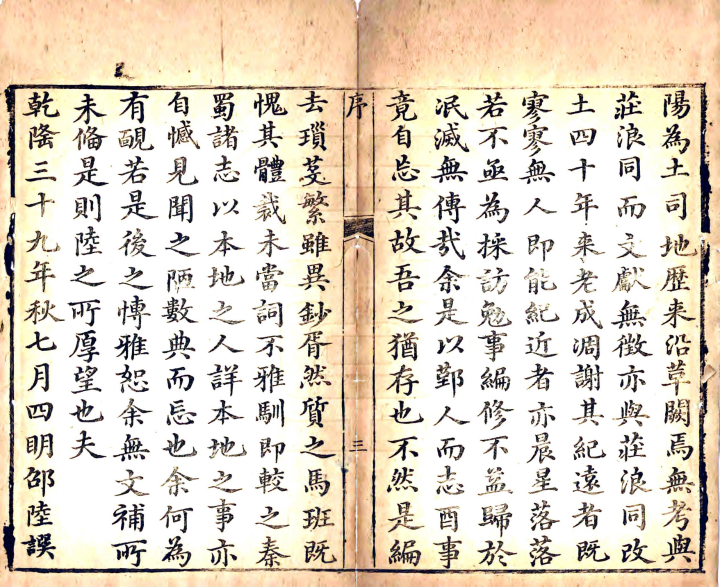 陽為土司地歷来沿革闕焉無考與
莊浪同而文獻無徵亦與莊浪同改
土四十年来老成凋謝其紀遠者既
寥寥無人即能紀近者亦晨星落落
若不亟為採訪勉事編修不益歸於
泯滅無傳哉余是以鄞人而志酉事
竟自忘其故吾之猶存也不然是編
序
三
去瑣芟繁雖異鈔胥然質之馬班既
愧其體裁未當詞不雅馴即較之秦
蜀諸志以本地之人詳本地之事亦
自憾見聞之陋數典而忘也余何為
有靦若是後之愽雅恕余無文補所
未偹是則陸之所厚望也夫
乾隆三十九年秋七月四明邵陸譔